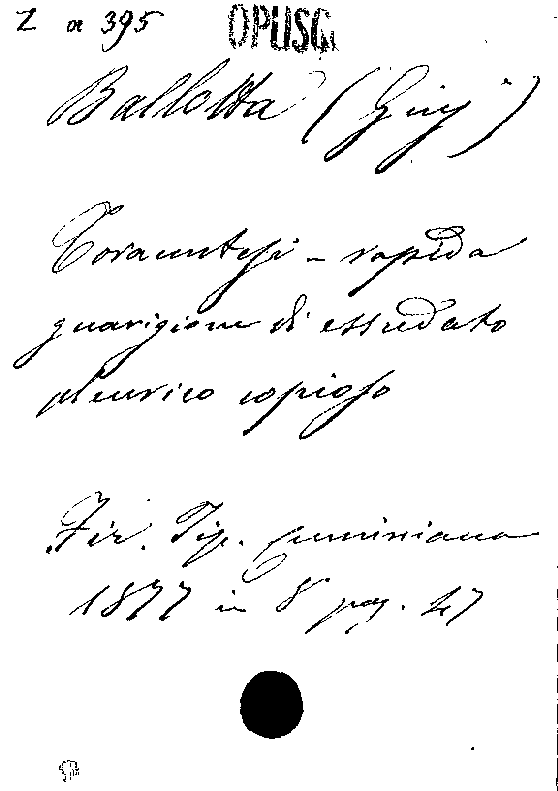 Z a 395 OPUSC.
Ballotta (Gius)
Toracentesi - rapida
guarigione di essudato
pleurico copioso
Fir. Tip. Cenniniana
1877 in 8° pag. 47